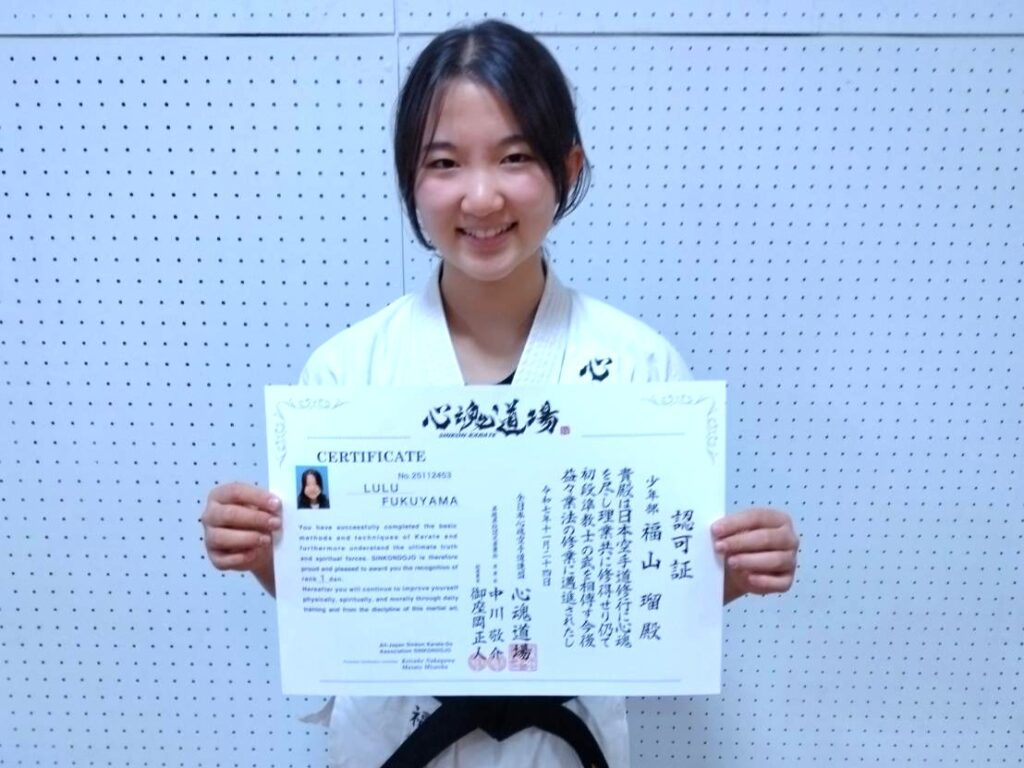 心
心魂道場
SINKON-KARATE
CERTIFICATE
No.25112453
LULU
FUKUYAMA
You have successfully completed the basic
methods and techniques of Karate and
furthermore understand the ultimate truth
and spiritual forces. SINKONDOJO is therefore
proud and pleased to award you the recognition of
rank 1 dan.
Hereafter you will continue to improve yourself
physically, spiritually, and morally through daily
training and from the discipline of this martial art.
All-Japan Sinkon Karate-Do
Association SINKONDOJO
認可証
少年部 福山 瑠 殿
貴殿は日本空手道修行に心魂
を尽し理業共に修得せり仍て
初段準教士の武を相傳す今後
益々業法の修業に邁進されたし
令和七年十一月二十四日
全日本心魂空手道連盟
心魂道場
中川敬介
御座岡正人
福